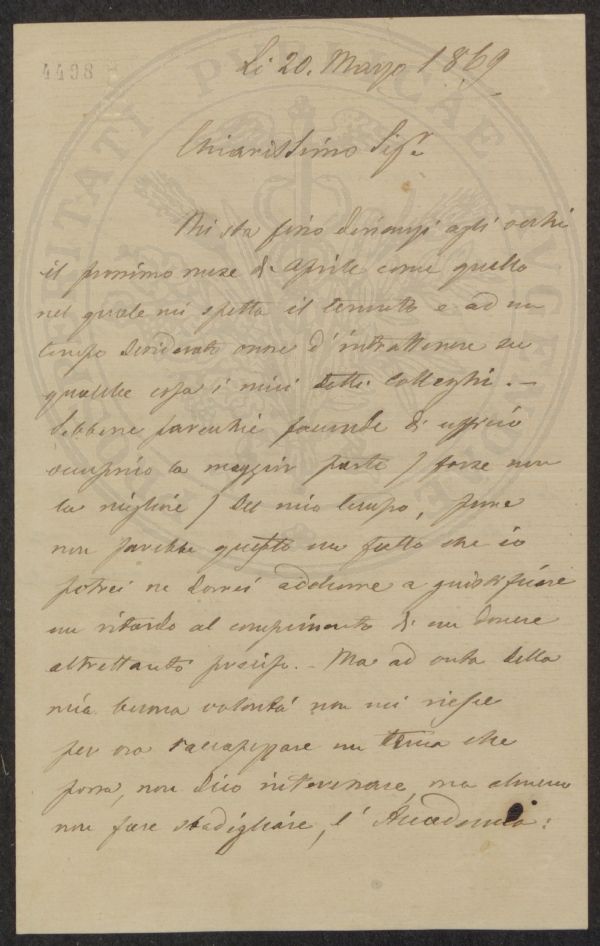 4498
Li 20. Marzo 1869
Chiarissimo Sigr
Mi sta fino dinanzi agli occhi
il prossimo mese di Aprile come quello
nel quale mi spetta il temuto e ad un
tempo desiderato onore d'intrattenere su
qualche cosa i miei dotti Colleghi. —
Sebbene parecchie faccende di ufficio
occupino la maggior parte / forse non
la migliore / del mio tempo, pure
non sarebbe questo un fatto che io
potrei ne dovrei addurre a giustificare
un ritardo al compimento di un dovere
altrettanto preciso. — Ma ad onta della
mia buona volontà non mi riesce
per ora racappezzare un tema che
possa, non dico interessare, ma almeno
non fare sbadigliare, l'Accademia: